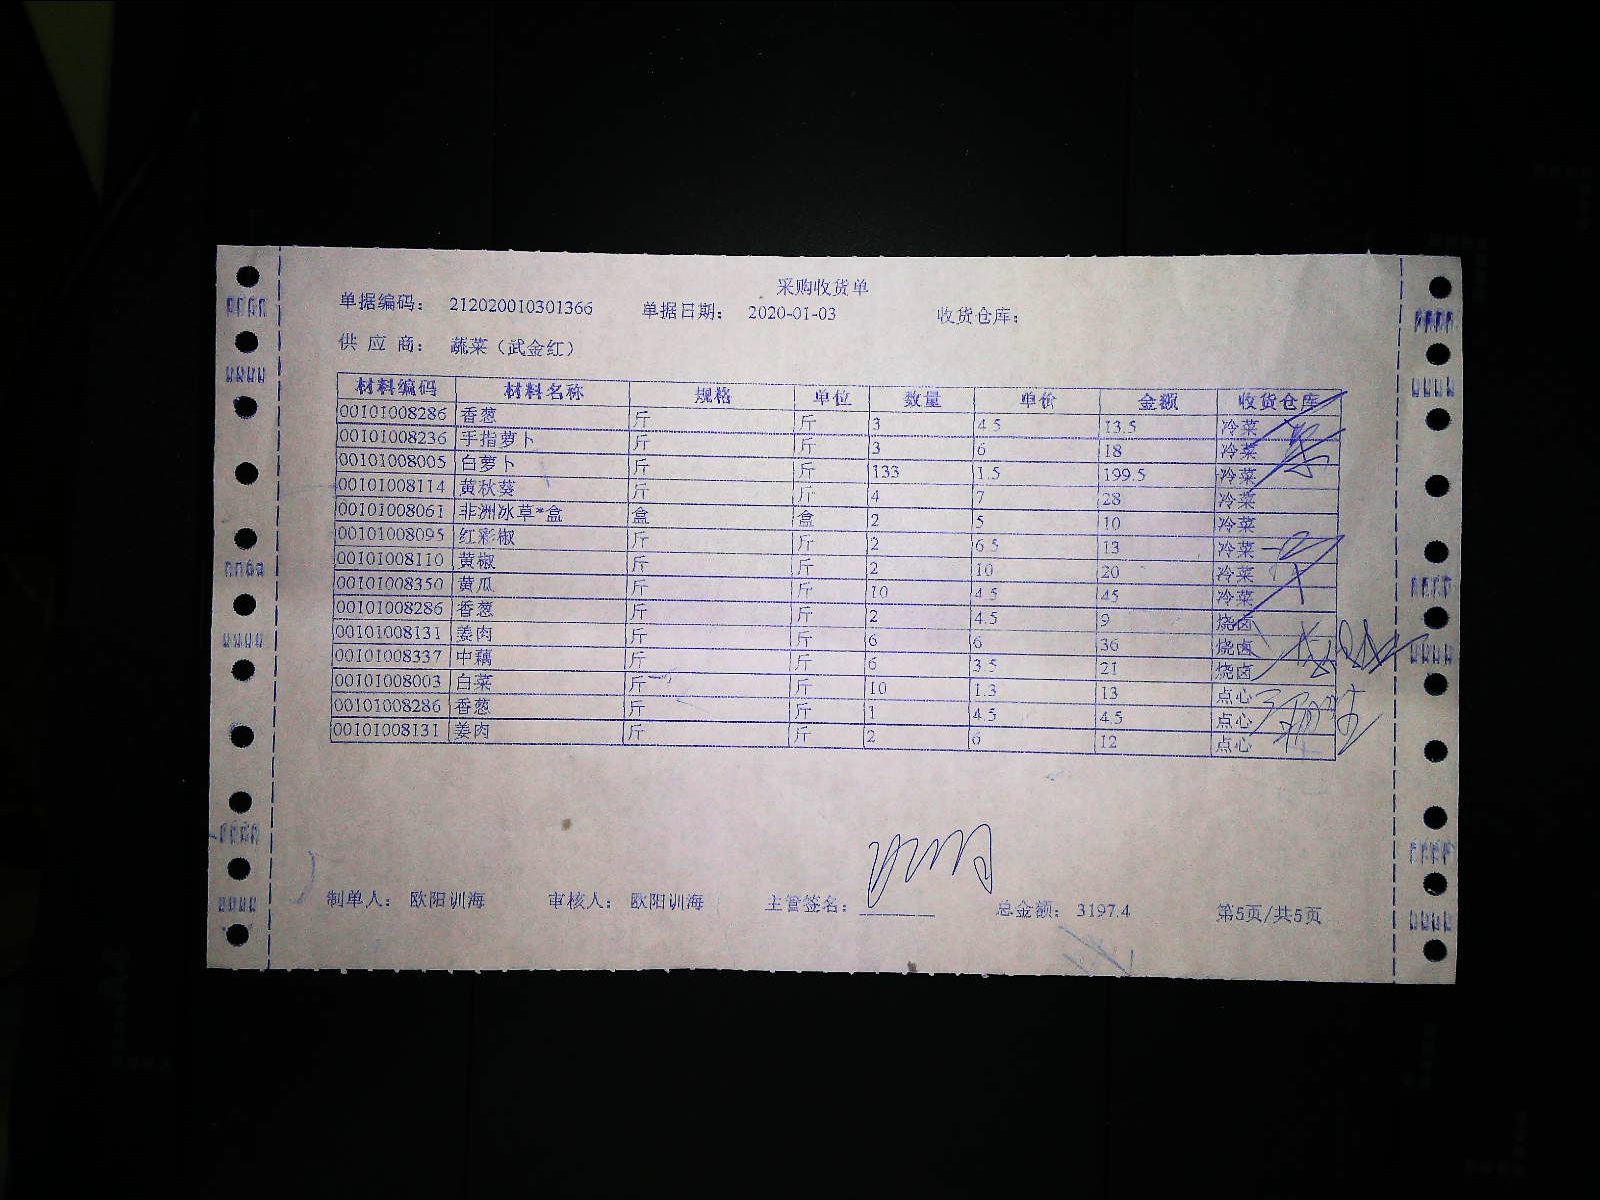 采购收货单
单据编码： 212020010301366 单据日期： 2020-01-03 收货仓库：
供 应 商： 蔬菜（武金红）
材料编码 材料名称 规格 单位 数量 单价 金额 收货仓库
00101008286 香葱 斤 斤 3 4.5 13.5 冷菜
00101008236 手指萝卜 斤 斤 3 6 18 冷菜
00101008005 白萝卜 斤 斤 133 1.5 199.5 冷菜
00101008114 黄秋葵 斤 斤 4 7 28 冷菜
00101008061 非洲冰草*盒 盒 盒 2 5 10 冷菜
00101008095 红彩椒 斤 斤 2 6.5 13 冷菜
00101008110 黄椒 斤 斤 2 10 20 冷菜
00101008350 黄瓜 斤 斤 10 4.5 45 冷菜
00101008286 香葱 斤 斤 2 4.5 9 烧卤
00101008131 姜肉 斤 斤 6 6 36 烧卤
00101008337 中藕 斤 斤 6 3.5 21 烧卤
00101008003 白菜 斤 斤 10 1.3 13 点心
00101008286 香葱 斤 斤 1 4.5 4.5 点心
00101008131 姜肉 斤 斤 2 6 12 点心
制单人： 欧阳训海 审核人： 欧阳训海 主管签名： 总金额： 3197.4 第5页/共5页